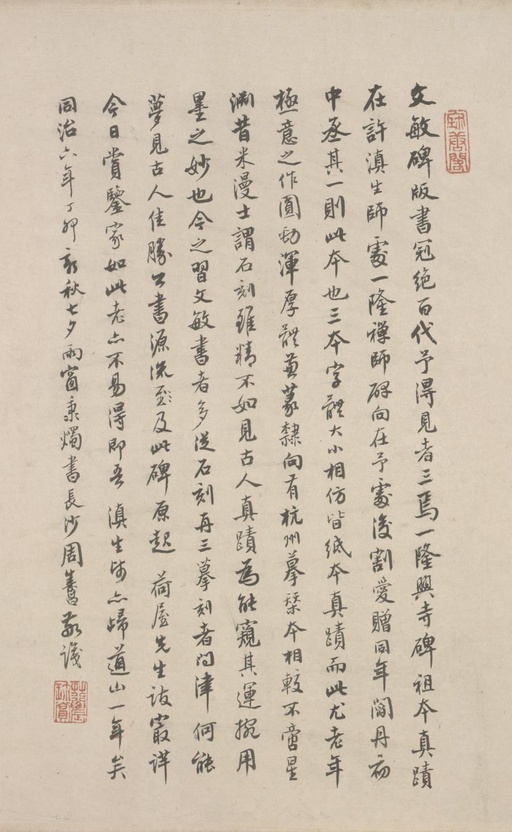 文敏碑版書冠絕百代予得見者三焉一隆興寺碑祖本真蹟
在許滇生師處一隆禪師碑向在予處後割愛贈同年閻丹初
中丞其一則此本也三本字體大小相仿皆紙本真蹟而此尤老年
極意之作圓勁渾厚體兼篆隸向有杭州摹棨本相較不啻星
淵昔米漫士謂石刻雖精不如見古人真蹟為能窺其運捥用
墨之妙也今之習文敏書者多從石刻再三摹刻者問津何能
夢見古人佳勝公書源流及此碑原起 荷屋先生說最詳
今日賞鑒家如此老亦不易得即吾 滇生師亦歸道山一年矣
同治六年丁卯秋七夕雨窗秉燭書長沙周壽昌識